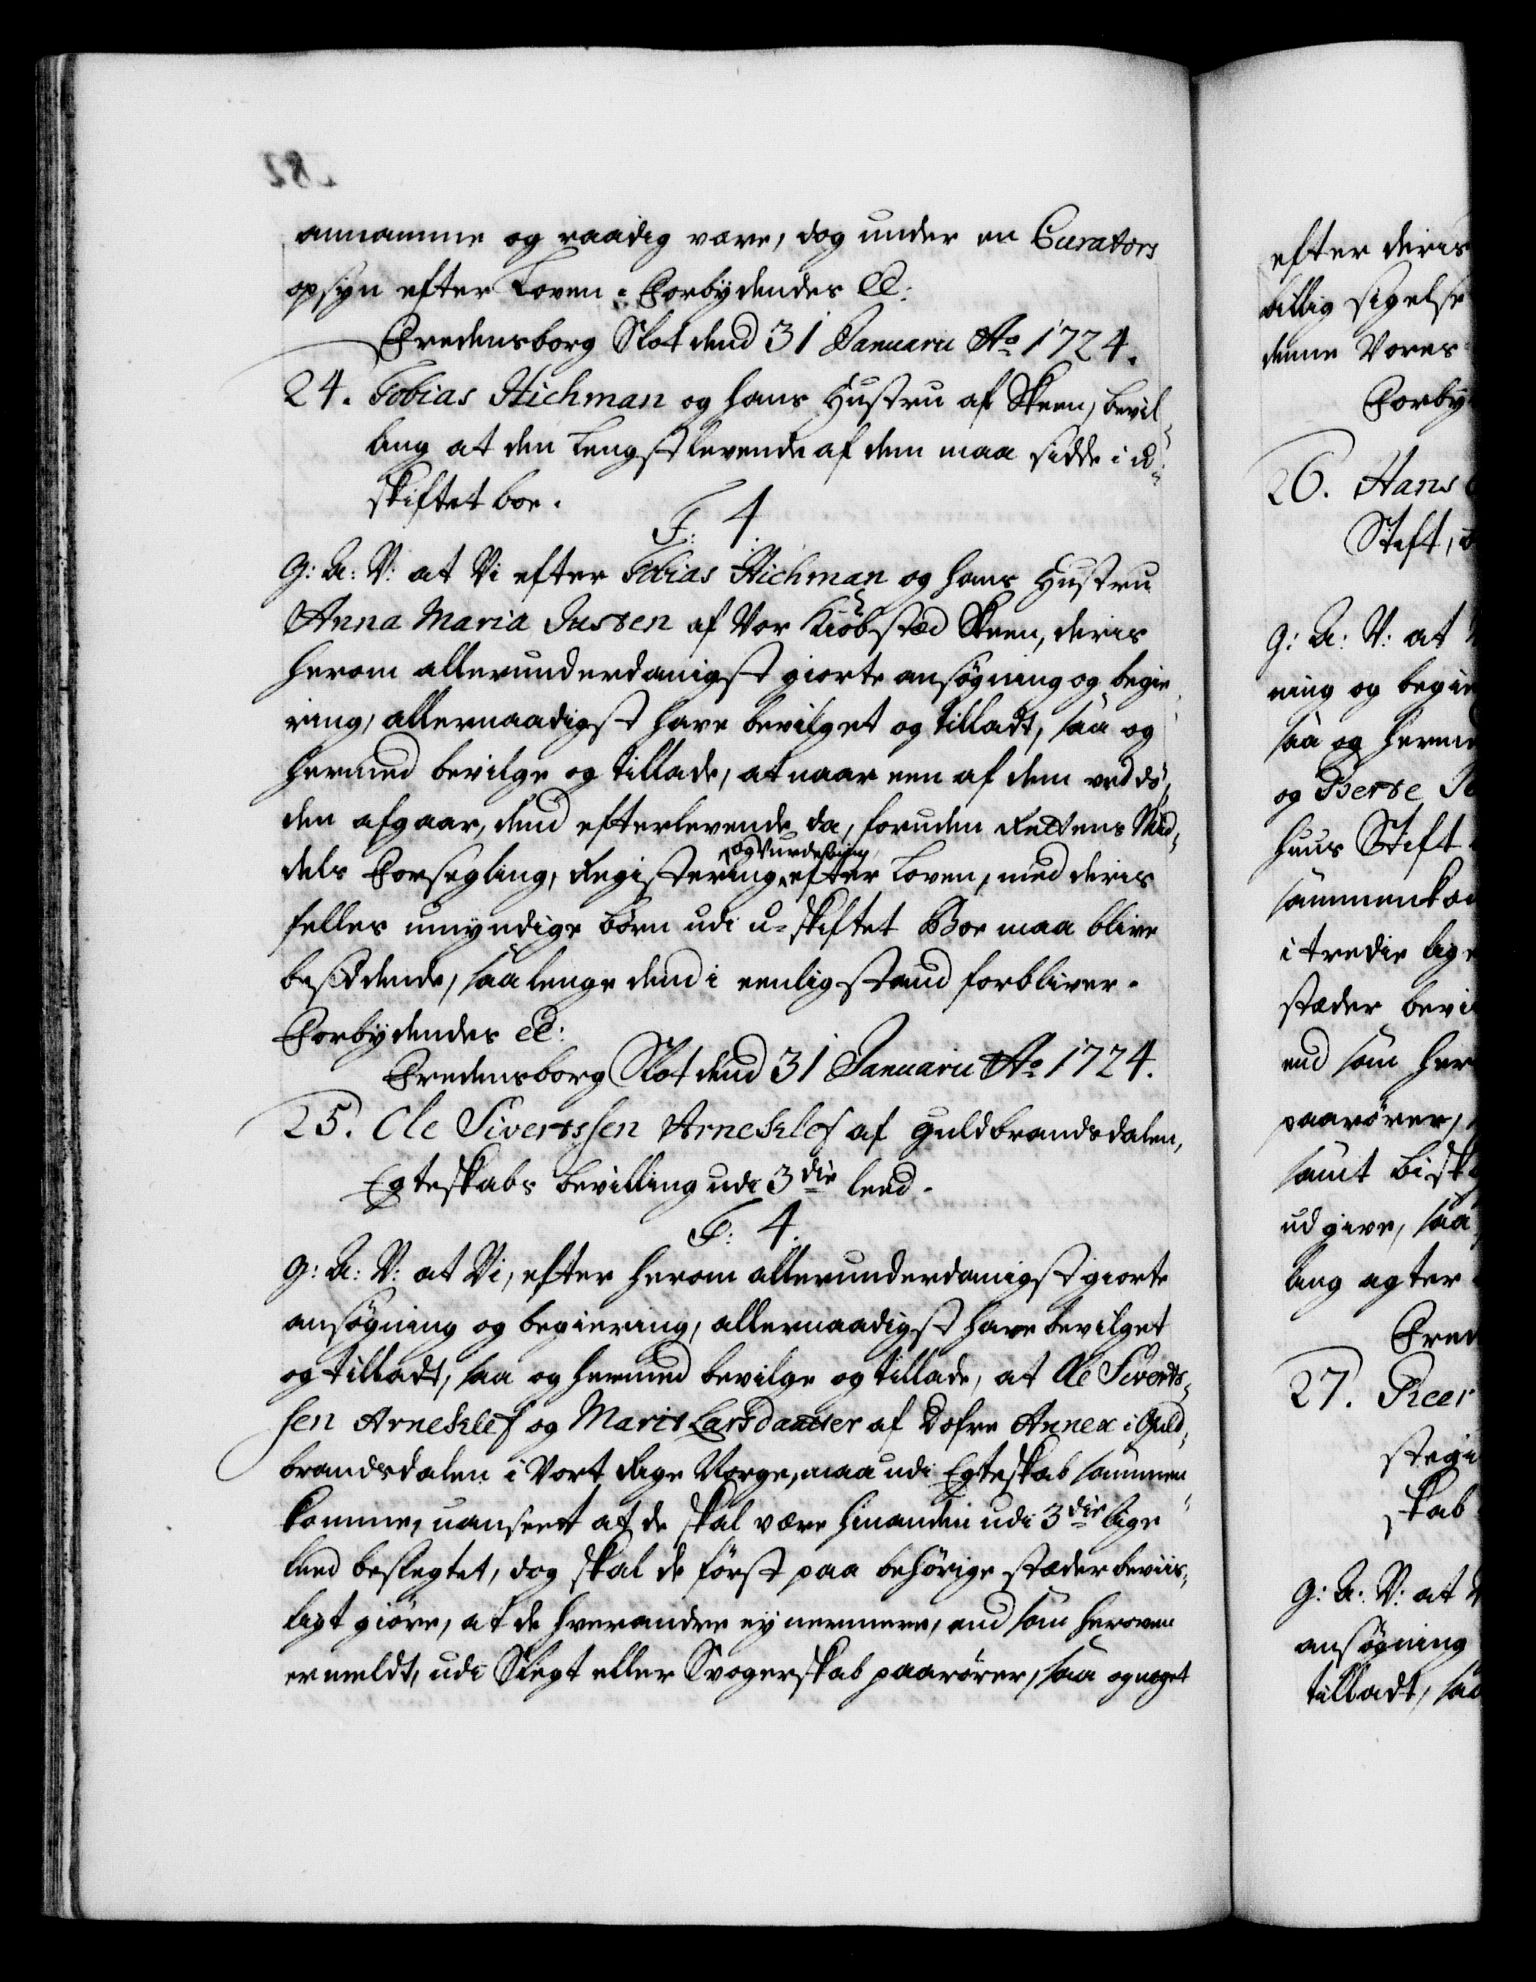 annamme og raadig være, dog under en Curators
opsyn efter Loven. Forbydendes etc:
Fredensborg Slot dend 31 Januarii Ao 1724.
24. Tobias Stichman og hans Hustru af Skeen, bevil-
ling at den Lengstlevende af dem maa sidde i u-
skiftet boe.
F: 4
G: A: V: at Vi efter Tobias Stichman og hans Hustru
Anna Maria Jussen af Vor Kiöbstæd Skeen, deris
herom allerunderdanigst giorte ansøgning og begie-
ring, allernaadigst have bevilget og tilladt, saa og
hermed bevilge og tillade, at naar een af dem ved dö-
den afgaar, dend efterlevende da, foruden Rettens Mid-
dels Forsegling, Registering og Vurdering efter Loven, med deris
felles umyndige børn udi u-skiftet Boe maa blive
besiddende, saalenge dend i eenlig stand forbliver.
Forbydendes etc:
Fredensborg Slot dend 31 Januarii Ao 1724.
25. Ole Siverssen Arneklef af Guldbrandsdalen,
Egteskabs bevilling udi 3die leed.
F: 4.
G: A: V: at Vi, efter herom allerunderdanigst giorte
ansøgning og begiering, allernaadigst have bevilget
og tilladt, saa og hermed bevilge og tillade, at Ole Siverts-
sen Arneklef og Marit Larsdaatter af Dofre Annex i Guld-
brandsdalen i Vort Rige Norge, maa udi Egteskab sammen-
komme, uanseet at de skal være hinanden udi 3die lige
leed beslegtet, dog skal de först paa behörige stæder beviis-
ligt giöre, at de hverandre ey nermere, end som heroven
ermeldt, udi Slegt eller Svogerskab paarörer, saa og noget
efter deris
billig sigelse
denne Vores
Forby
26. Hans
Stift,
G: A: V: at
ning og begie
saa og herme
og Berte
huus Stift
sammenkom
i tredie lige
stæder bevi
end som her
paarörer,
samt bisk
udgive, saa
ling agter
Fred
27. Peer
stegi
skab
G: A: V: at
ansøgning
tilladt, saa